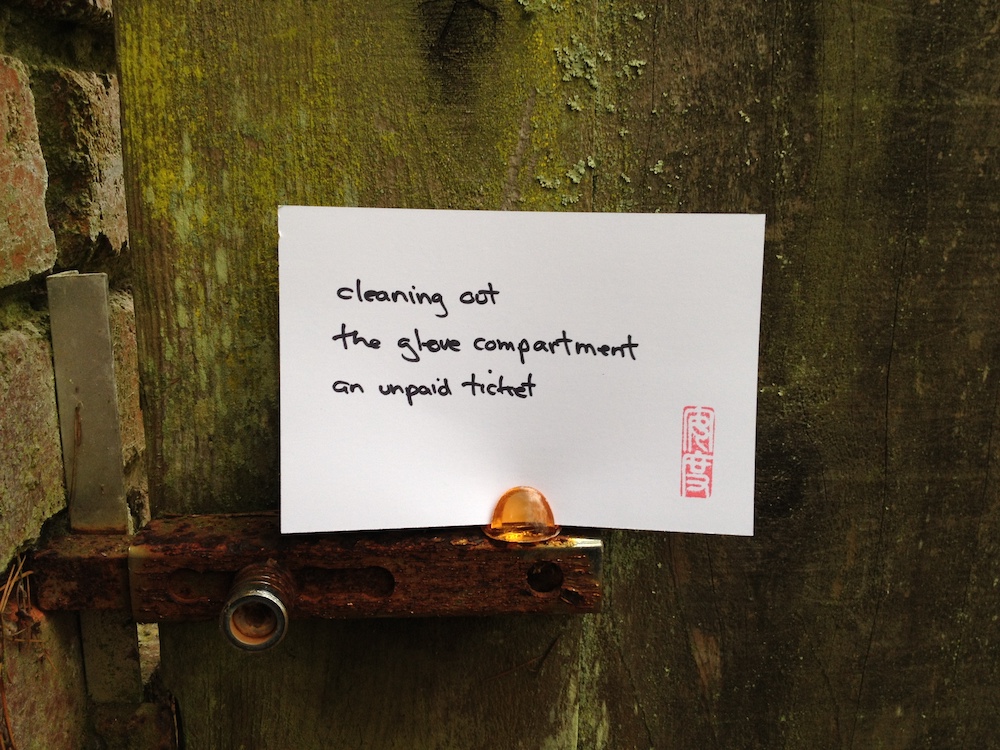 cleaning out
the glove compartment
an unpaid ticket